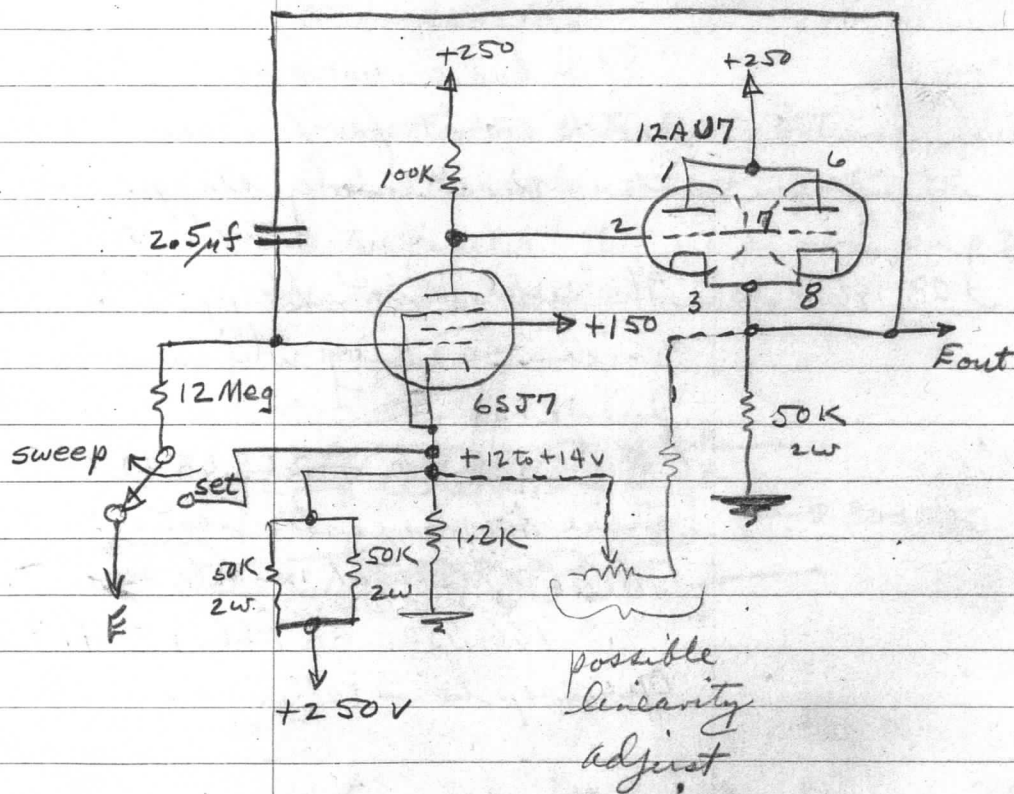 +250
+250
12AU7
1
6
100K
2.5μf
2
17
3
8
+150
Eout
12 Meg
6SJ7
50K
2W
sweep
+12 to +14V
set
1.2K
50K
2W
50K
2W
E
+250V
possible
linearity
adjust